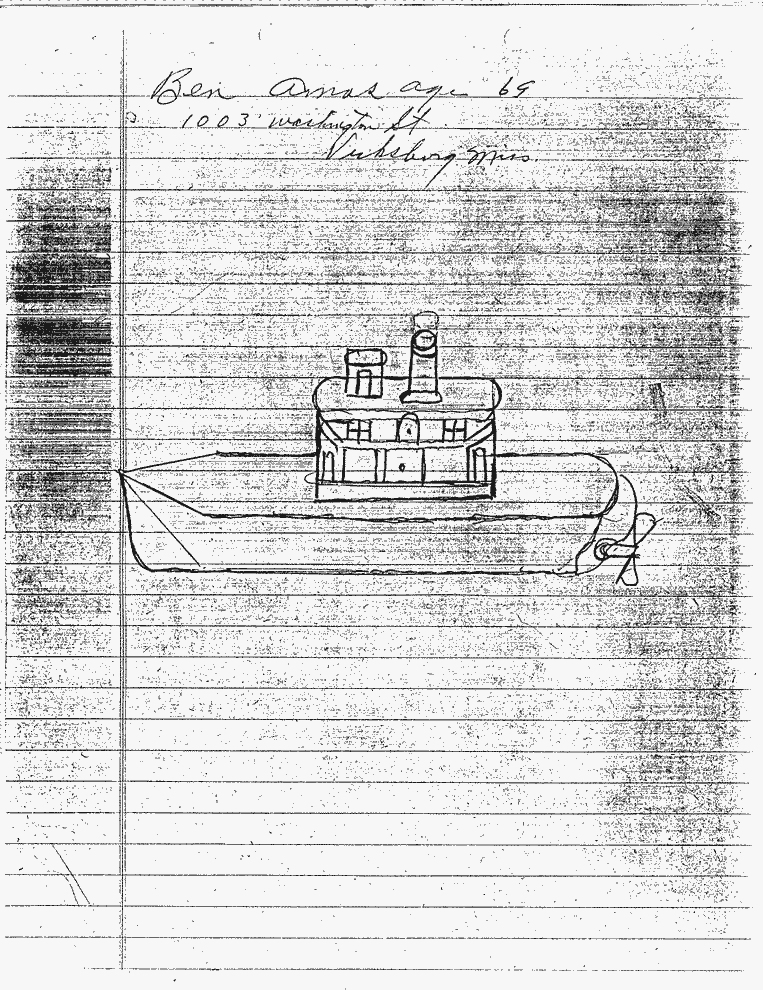 Ben Amos age 69
1003 Washington St
Vicksburg Miss.